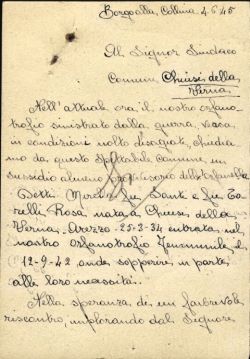 Borgo alla Collina, 4-6-45
Al Signor Sindaco
Comune Chiusi della
Verna
Nell'attuale ora il nostro orfano-
trofio sinistrato dalla guerra, versa
in condizioni molto disagiate, chiedia
mo da questo Spettabile Comune un
sussidio almeno provvisorio dell'orfanella
Detti fu Santi e fu
Rosa, nata a Chiusi della
Verna - Arezzo - 25-3-34 entrata nel
nostro orfanotrofio femminile il
12-9-42, onde sopperire in parte
alle loro necessità.
Nella speranza di un favorevole
riscontro, implorando dal Signore